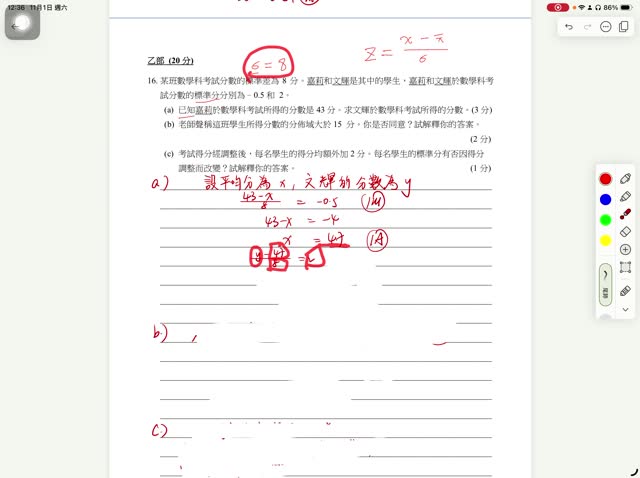 12:36 11月1日 週六
86%
乙部 (20 分)
σ = 8
z = x - x̄ / σ
16. 某班數學科考試分數的標準差為 8 分。嘉莉和文輝是其中的學生，嘉莉和文輝於數學科考
試分數的標準分分別為 – 0.5 和 2。
(a) 已知嘉莉於數學科考試所得的分數是 43 分。求文輝於數學科考試所得的分數。(3 分)
(b) 老師聲稱這班學生所得分數的分佈域大於 15 分。你是否同意？試解釋你的答案。
(2 分)
(c) 考試得分經調整後，每名學生的得分均額外加 2 分。每名學生的標準分有否因得分
調整而改變？試解釋你的答案。 (1 分)
a) 設平均分為 x，文輝的分數為 y
43-x / 8 = -0.5 1M
43-x = -4
x = 47 1A
y - 47 / 8 = 2
b)
c)